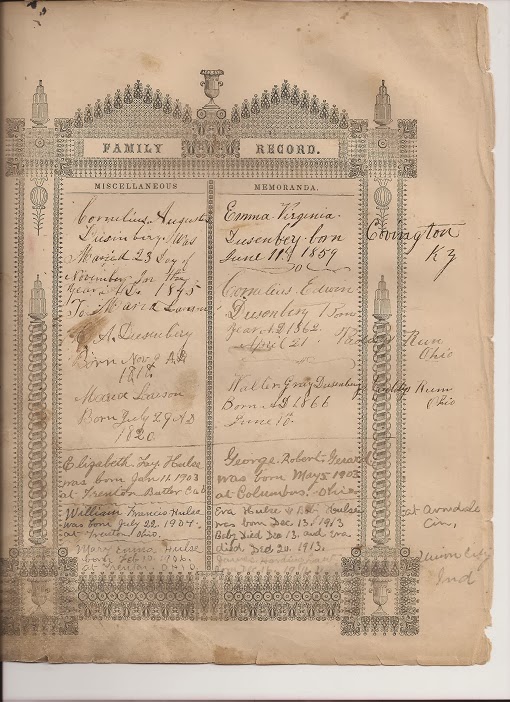 FAMILY RECORD.
MISCELLANEOUS
Cornelius August
Dusinbery Was
Maried 23 Day of
November In the
Year AD 1845
To Maria
C. A. Dusenbery
Born Nov. 9 AD
1818
Maria Lawson
Born July 29 AD
1820
Elizabeth Fay Hulse
was born Jan. 11 1903
at Trenton Butler Co. O
William Francis Hulse
was born July 22, 1904.
at Trenton Ohio.
Mary Emma Hulse
born Feb 10. 1906.
at Trenton, Ohio
MEMORANDA.
Emma Virginia
Dusenbey born
June 11th 1859
Covington
Ky
Cornelius Edwin
Dusenbery Born
Year AD 1862
April 21
Run
Ohio
Walter Gray Dusenbery
Born AD 1866
June 10
Run
Ohio
George Robert Gerard
was born May 5 1903
at Columbus, Ohio
Eva Hulse & Hulse
was born Dec. 13, 1913
Baby Died Dec 13. and Eva
died Dec 20, 1913.
at Avondale
Cin,
Union City
Ind